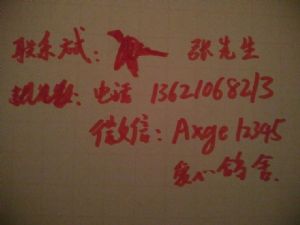 联系方式： 张先生
电话 13621068213
微信：Axge12345
爱心鸽舍